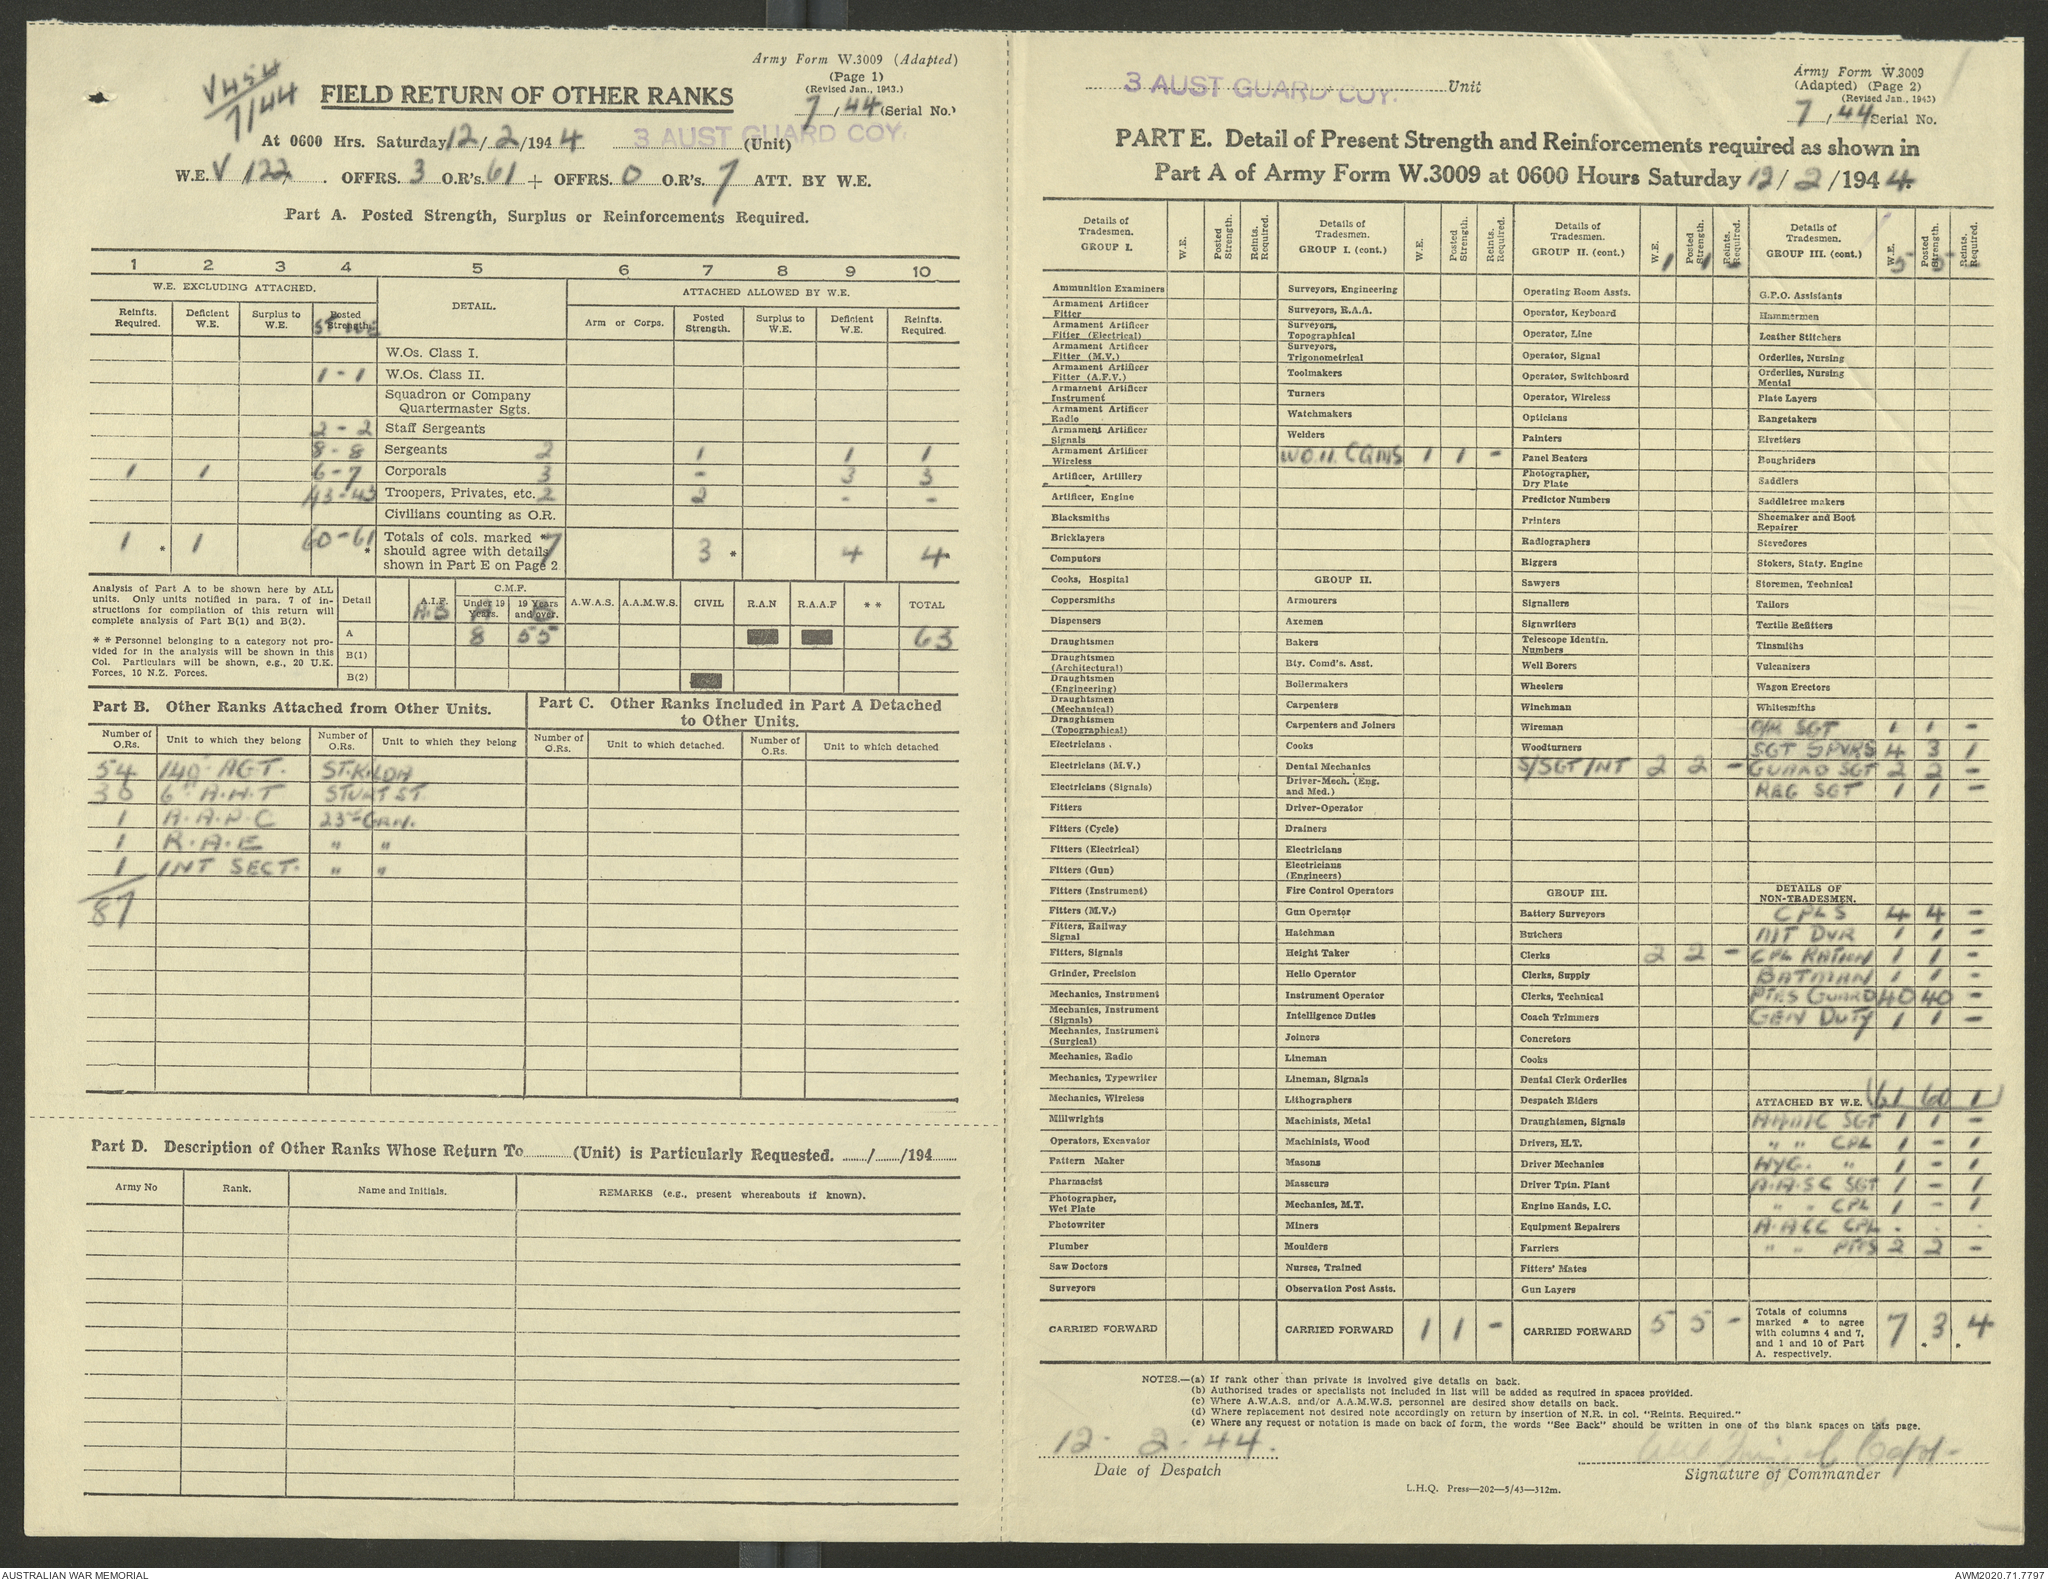 Army Form W.3009 (Adapted)
(Page 1)
(Revised Jan., 1943.)
V454
7/44
FIELD RETURN OF OTHER RANKS
7/44 (Serial No.)
At 0600 Hrs. Saturday 12/2/1944 3 AUST GUARD COY. (Unit)
W.E. V 122. OFFRS. 3 O.R's. 61 + OFFRS. 0 O.R's. 7 ATT. BY W.E.
Part A. Posted Strength, Surplus or Reinforcements Required.
1 2 3 4 5 6 7 8 9 10
W.E. EXCLUDING ATTACHED. DETAIL. ATTACHED ALLOWED BY W.E.
Reinfts. Required. Deficient W.E. Surplus to W.E. Posted Strength. Arm or Corps. Posted Strength. Surplus to W.E. Deficient W.E. Reinfts. Required.
W.Os. Class I.
1 - 1 W.Os. Class II.
Squadron or Company Quartermaster Sgts.
2 - 2 Staff Sergeants
8 - 8 Sergeants 2 1 1 1
1 1 6 - 7 Corporals 3 - 3 3
43 - 43 Troopers, Privates, etc. 2 2 - -
Civilians counting as O.R.
1 * 1 60 - 61 * Totals of cols. marked * should agree with details shown in Part E on Page 2 7 3 * 4 4 *
Analysis of Part A to be shown here by ALL units. Only units notified in para. 7 of instructions for compilation of this return will complete analysis of Part B(1) and B(2).
* * Personnel belonging to a category not provided for in the analysis will be shown in this Col. Particulars will be shown, e.g., 20 U.K. Forces, 10 N.Z. Forces.
Detail A.I.F. C.M.F. Under 19 Years. 19 Years and over. A.W.A.S. A.A.M.W.S. CIVIL R.A.N R.A.A.F * * TOTAL
A 8 55 63
B(1)
B(2)
Part B. Other Ranks Attached from Other Units.
Part C. Other Ranks Included in Part A Detached to Other Units.
Number of O.Rs. Unit to which they belong Number of O.Rs. Unit to which they belong Number of O.Rs. Unit to which detached. Number of O.Rs. Unit to which detached
54 140 AGT. ST. KILDA
30 6 A.H.T STURT ST.
1 A.A.P.C 23rd GRN.
1 R.A.E " "
1 INT SECT. " "
87
Part D. Description of Other Ranks Whose Return To (Unit) is Particularly Requested. / /194
Army No Rank. Name and Initials. REMARKS (e.g., present whereabouts if known).
3 AUST GUARD COY. Unit
Army Form W.3009
(Adapted) (Page 2)
(Revised Jan., 1943)
7/44 Serial No.
PART E. Detail of Present Strength and Reinforcements required as shown in
Part A of Army Form W.3009 at 0600 Hours Saturday 12/2/1944.
Details of Tradesmen. GROUP I. W.E. Posted Strength. Reints. Required.
Ammunition Examiners
Armament Artificer Fitter
Armament Artificer Fitter (Electrical)
Armament Artificer Fitter (M.V.)
Armament Artificer Fitter (A.F.V.)
Armament Artificer Instrument
Armament Artificer Radio
Armament Artificer Signals
Armament Artificer Wireless
Artificer, Artillery
Artificer, Engine
Blacksmiths
Bricklayers
Computors
Cooks, Hospital
Coppersmiths
Dispensers
Draughtsmen
Draughtsmen (Architectural)
Draughtsmen (Engineering)
Draughtsmen (Mechanical)
Draughtsmen (Topographical)
Electricians.
Electricians (M.V.)
Electricians (Signals)
Fitters
Fitters (Cycle)
Fitters (Electrical)
Fitters (Gun)
Fitters (Instrument)
Fitters (M.V.)
Fitters, Railway Signal
Fitters, Signals
Grinder, Precision
Mechanics, Instrument
Mechanics, Instrument (Signals)
Mechanics, Instrument (Surgical)
Mechanics, Radio
Mechanics, Typewriter
Mechanics, Wireless
Millwrights
Operators, Excavator
Pattern Maker
Pharmacist
Photographer, Wet Plate
Photowriter
Plumber
Saw Doctors
Surveyors
CARRIED FORWARD
Details of Tradesmen. GROUP I. (cont.) W.E. Posted Strength. Reints. Required.
Surveyors, Engineering
Surveyors, R.A.A.
Surveyors, Topographical
Surveyors, Trigonometrical
Toolmakers
Turners
Watchmakers
Welders
W.O.II. CQMS 1 1 -
GROUP II.
Armourers
Axemen
Bakers
Bty. Comd's. Asst.
Boilermakers
Carpenters
Carpenters and Joiners
Cooks
Dental Mechanics
Driver-Mech. (Eng. and Med.)
Driver-Operator
Drainers
Electricians
Electricians (Engineers)
Fire Control Operators
Gun Operator
Hatchman
Height Taker
Hello Operator
Instrument Operator
Intelligence Duties
Joiners
Lineman
Lineman, Signals
Lithographers
Machinists, Metal
Machinists, Wood
Masons
Masseurs
Mechanics, M.T.
Miners
Moulders
Nurses, Trained
Observation Post Assts.
CARRIED FORWARD 1 1 -
Details of Tradesmen. GROUP II. (cont.) W.E. Posted Strength. Reints Required. 1 1 -
Operating Room Assts.
Operator, Keyboard
Operator, Line
Operator, Signal
Operator, Switchboard
Operator, Wireless
Opticians
Painters
Panel Beators
Photographer, Dry Plate
Predictor Numbers
Printers
Radiographers
Riggers
Sawyers
Signallers
Signwriters
Telescope Identfn. Numbers
Well Borers
Wheelers
Winchman
Wireman
Woodturners
S/SGT INT 2 2 -
GROUP III.
Battery Surveyors
Butchers
Clerks 2 2 -
Clerks, Supply
Clerks, Technical
Coach Trimmers
Concretors
Cooks
Dental Clerk Orderlies
Despatch Riders
Draughtsmen, Signals
Drivers, H.T.
Driver Mechanics
Driver Tptn. Plant
Engine Hands, I.C.
Equipment Repairers
Farriers
Fitters' Mates
Gun Layers
CARRIED FORWARD 5 5 -
Details of Tradesmen. GROUP III. (cont.) W.E. Posted Strength. Reints. Required. 5 5 -
G.P.O. Assistants
Hammermen
Leather Stitchers
Orderlies, Nursing
Orderlies, Nursing Mental
Plate Layers
Rangetakers
Rivetters
Roughriders
Saddlers
Saddletree makers
Shoemaker and Boot Repairer
Stevedores
Stokers, Staty. Engine
Storemen, Technical
Tailors
Textile Refitters
Tinsmiths
Vulcanizers
Wagon Erectors
Whitesmiths
O/R SGT 1 1 -
SGT SPVRS 4 3 1
GUARD SGT 2 2 -
REG SGT 1 1 -
DETAILS OF NON-TRADESMEN.
CPLS 4 4 -
MT DVR 1 1 -
CPL RATION 1 1 -
BATMAN 1 1 -
PTES GUARD 40 40 -
GEN DUTY 1 1 -
ATTACHED BY W.E. 61 60 1
A.A.M.C SGT 1 1 -
" " CPL 1 - 1
HYG. " 1 - 1
A.A.S.C SGT 1 - 1
" " CPL 1 - 1
A.ACC CPL . . .
" " PTES 2 2 -
Totals of columns marked * to agree with columns 4 and 7, and 1 and 10 of Part A. respectively. 7 3 4
NOTES.—(a) If rank other than private is involved give details on back.
(b) Authorised trades or specialists not included in list will be added as required in spaces provided.
(c) Where A.W.A.S. and/or A.A.M.W.S. personnel are desired show details on back.
(d) Where replacement not desired note accordingly on return by insertion of N.R. in col. "Reints. Required."
(e) Where any request or notation is made on back of form, the words "See Back" should be written in one of the blank spaces on this page.
12. 2. 44.
Date of Despatch
Capt.
Signature of Commander
L.H.Q. Press—202—5/43—312m.
AUSTRALIAN WAR MEMORIAL
AWM2020.71.7797